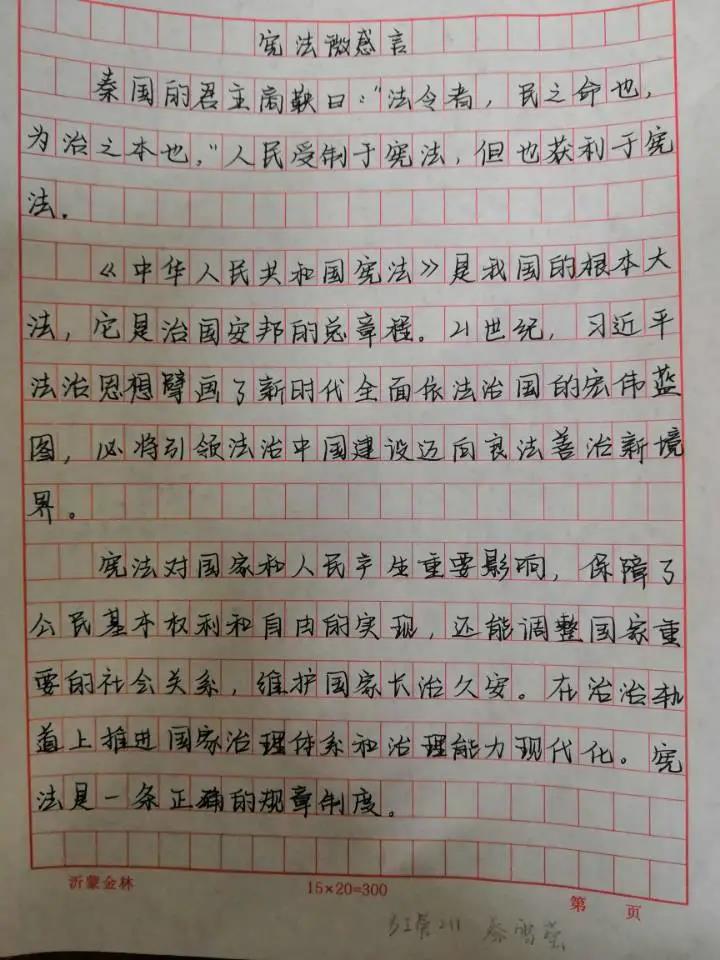 宪法微感言
秦国的君主商鞅曰："法令者，民之命也，
为治之本也，"人民受制于宪法，但也获利于宪
法．
《中华人民共和国宪法》是我国的根本大
法，它是治国安邦的总章程。21世纪，习近平
法治思想擘画了新时代全面依法治国的宏伟蓝
图，必将引领法治中国建设迈向良法善治新境
界。
宪法对国家和人民产生重要影响，保障了
公民基本权利和自由的实现，还能调整国家重
要的社会关系，维护国家长治久安。在治治轨
道上推进国家治理体系和治理能力现代化。宪
法是一条正确的规章制度。
沂蒙金林
15×20=300
第 页
211 秦